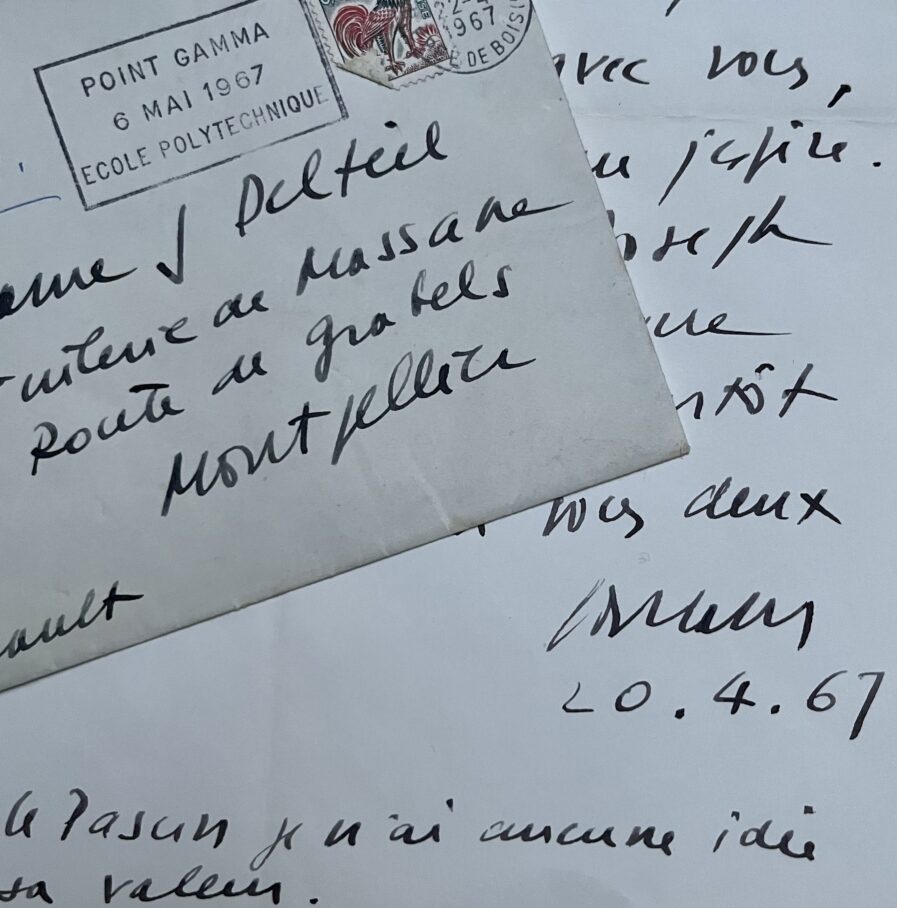 POINT GAMMA
6 MAI 1967
ECOLE POLYTECHNIQUE
1967
DE BOIS
J Delteil
Tuilerie de Massane
Route de Grabels
Montpellier
ault
avec vous,
justice.
Joseph
ntôt
vous deux
20.4.67
le Pascin je n'ai aucune idée
sa valeur.